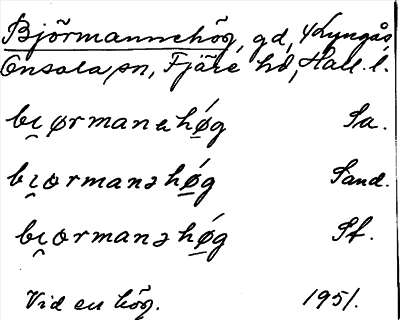 Björmannehög, gd, 4 Lyngås
Onsala sn, Fjäre hd, Hall. l.
bı̯ørmanəhǿg Sa.
bı̯ormanəhǿg Sand.
bı̯ormanəhǿg Pf.
Vid en hög. 1951.